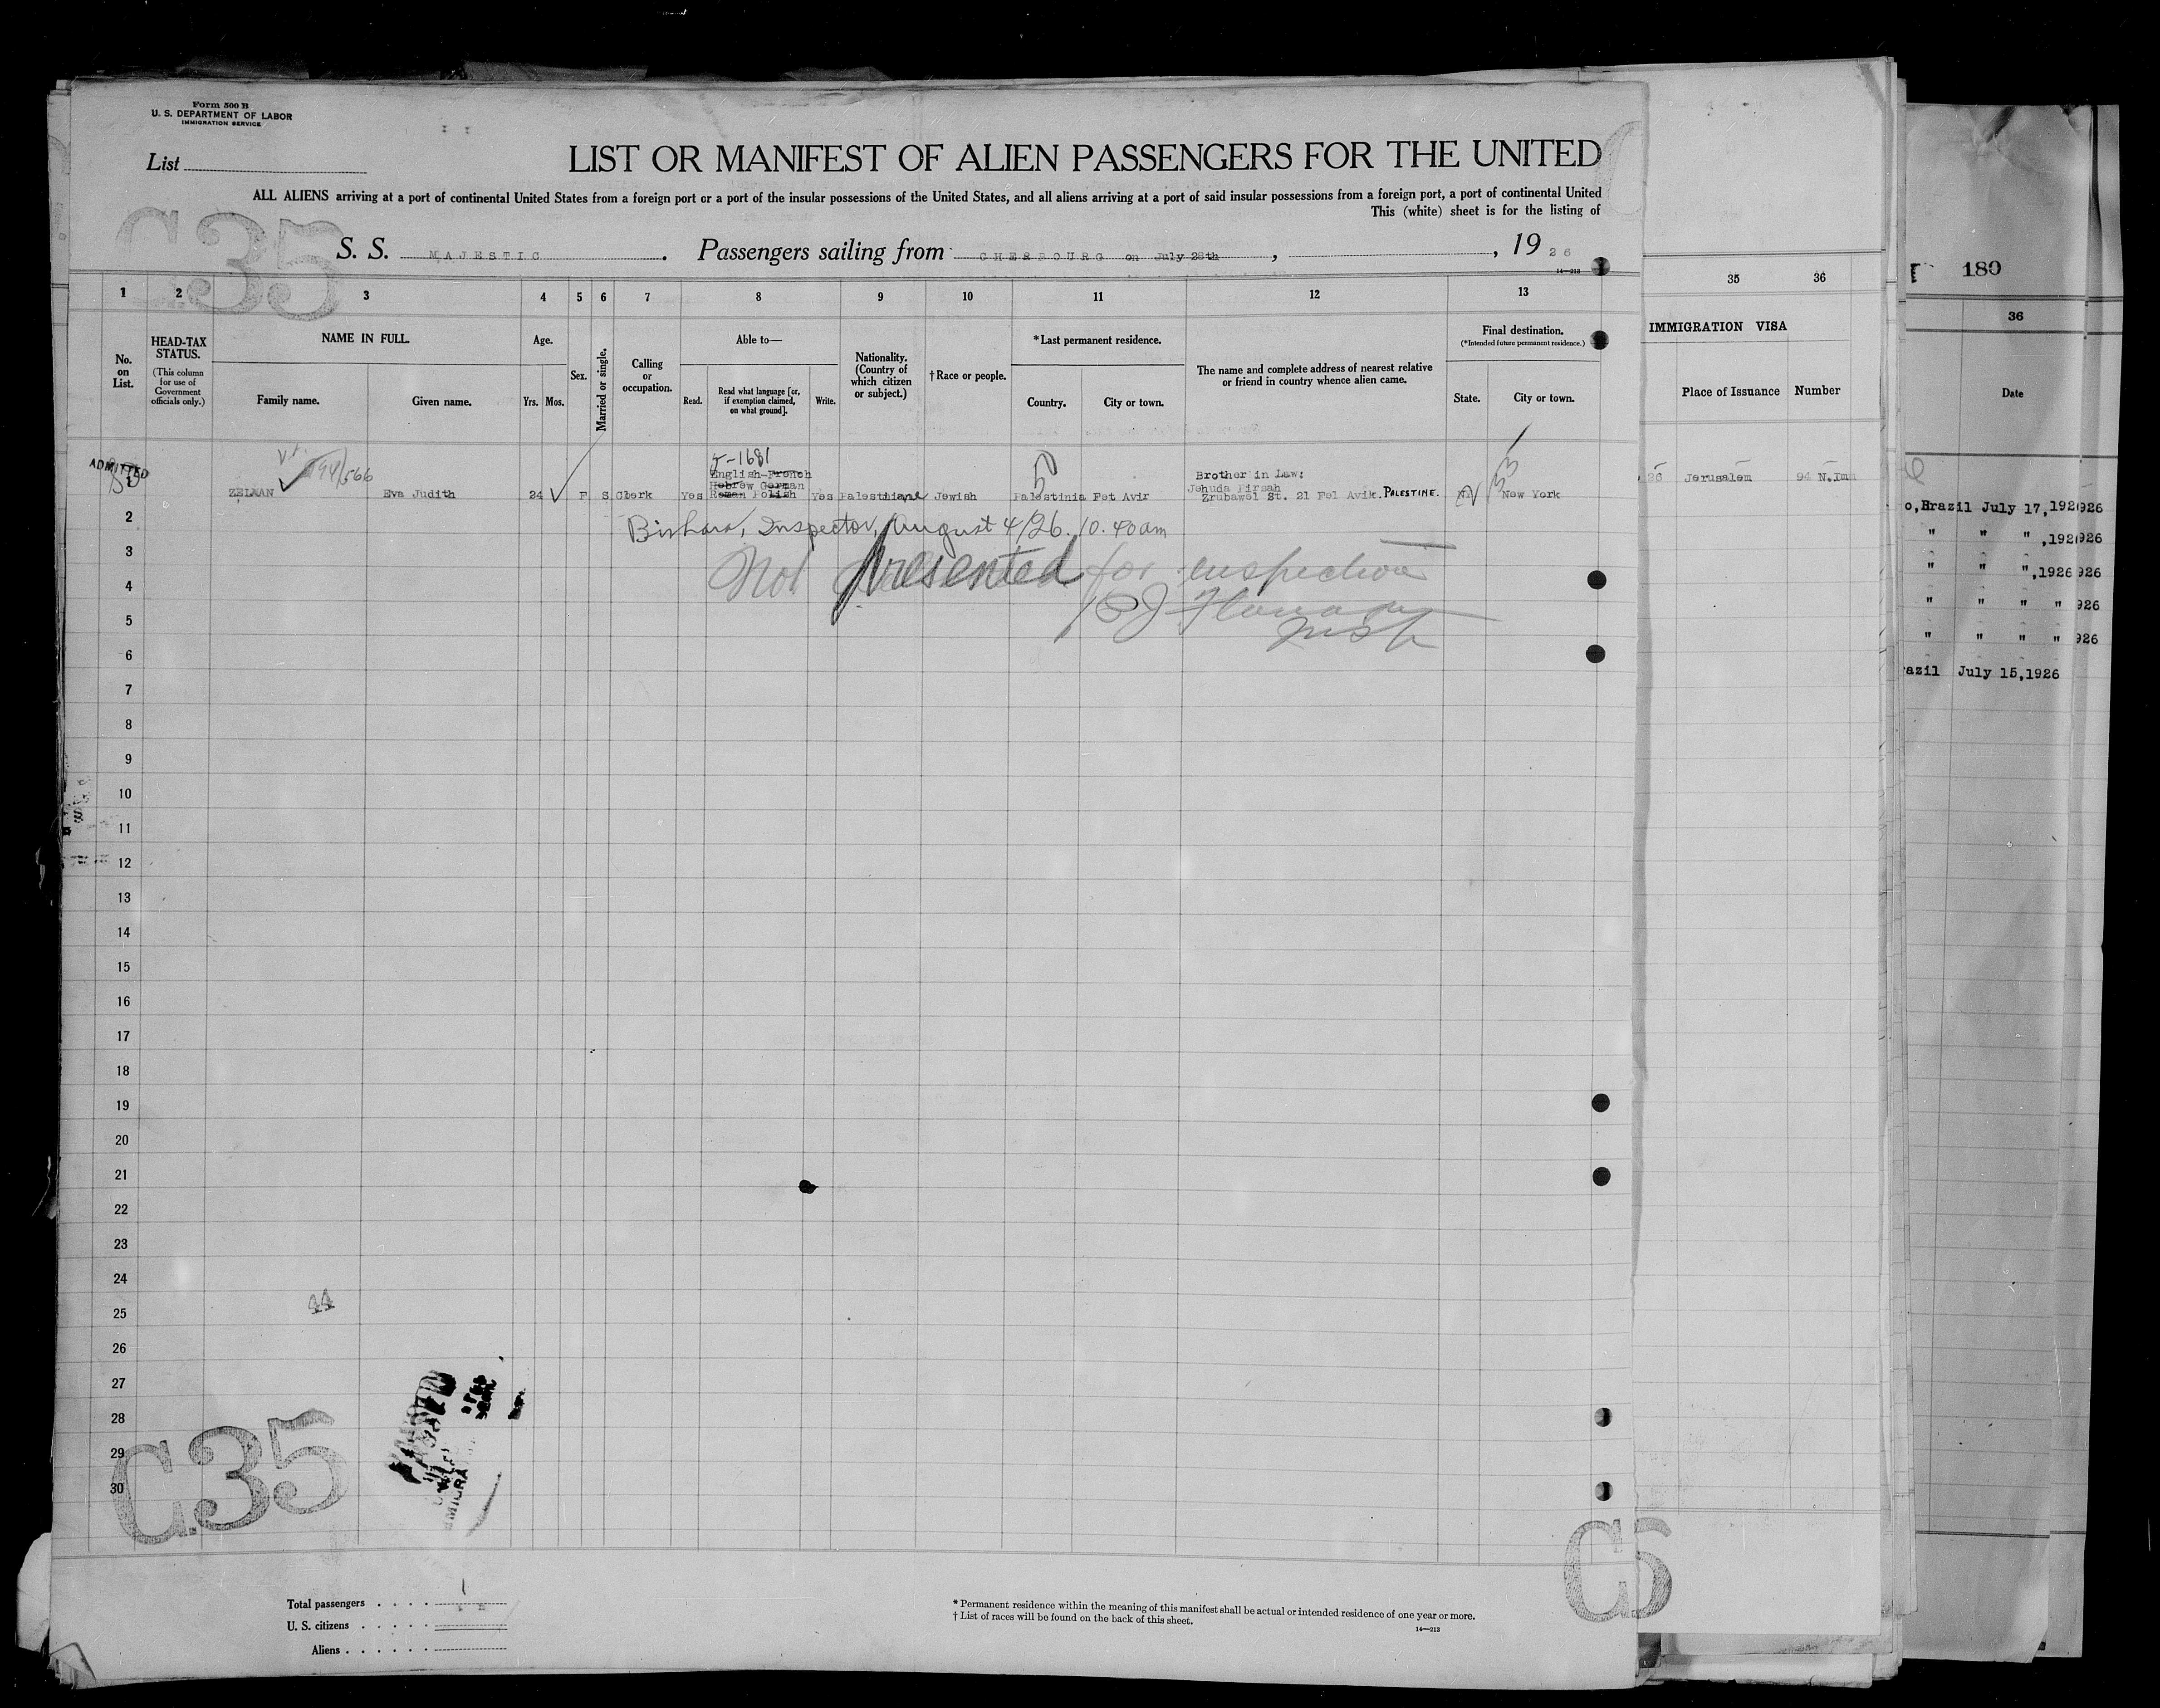 Form 500 B
U. S. DEPARTMENT OF LABOR
IMMIGRATION SERVICE
List
LIST OR MANIFEST OF ALIEN PASSENGERS FOR THE UNITED
ALL ALIENS arriving at a port of continental United States from a foreign port or a port of the insular possessions of the United States, and all aliens arriving at a port of said insular possessions from a foreign port, a port of continental United
This (white) sheet is for the listing of
C35
S. S. MAJESTIC. Passengers sailing from CHERBOURG on July 28th, , 1926
14—213
1 2 3 4 5 6 7 8 9 10 11 12 13
No. on List.
HEAD-TAX STATUS.
(This column for use of Government officials only.)
NAME IN FULL.
Family name. Given name.
Age.
Yrs. Mos.
Sex.
Married or single.
Calling or occupation.
Able to—
Read. Read what language [or, if exemption claimed, on what ground]. Write.
Nationality. (Country of which citizen or subject.)
†Race or people.
*Last permanent residence.
Country. City or town.
The name and complete address of nearest relative or friend in country whence alien came.
Final destination.
(*Intended future permanent residence.)
State. City or town.
35 36
IMMIGRATION VISA
Place of Issuance Number
180
36
Date
ADMITTED
5-1681
English-French
Hebrew German
Brother in Law:
Jehuda Pirsah
1 ZELMAN Eva Judith 24 F S Clerk Yes Roman Polish Yes Palestinian Jewish Palestinia Pet Avir Zrubawel St. 21 Fel Avik. PALESTINE. New York
26 Jerusalem 94 N.Imm
2 Bishara, Inspector, August 4/26. 10.40 am
3
4 Not presented for inspection
5
6
7
8
9
10
11
12
13
14
15
16
17
18
19
20
21
22
23
24
25
26
27
28
29
30
44
C35
o, Brazil July 17, 1926
" " " ,1926
" " ",1926
" " " "
" " " "
razil July 15,1926
Total passengers 1
U. S. citizens
Aliens
* Permanent residence within the meaning of this manifest shall be actual or intended residence of one year or more.
† List of races will be found on the back of this sheet.
14—213